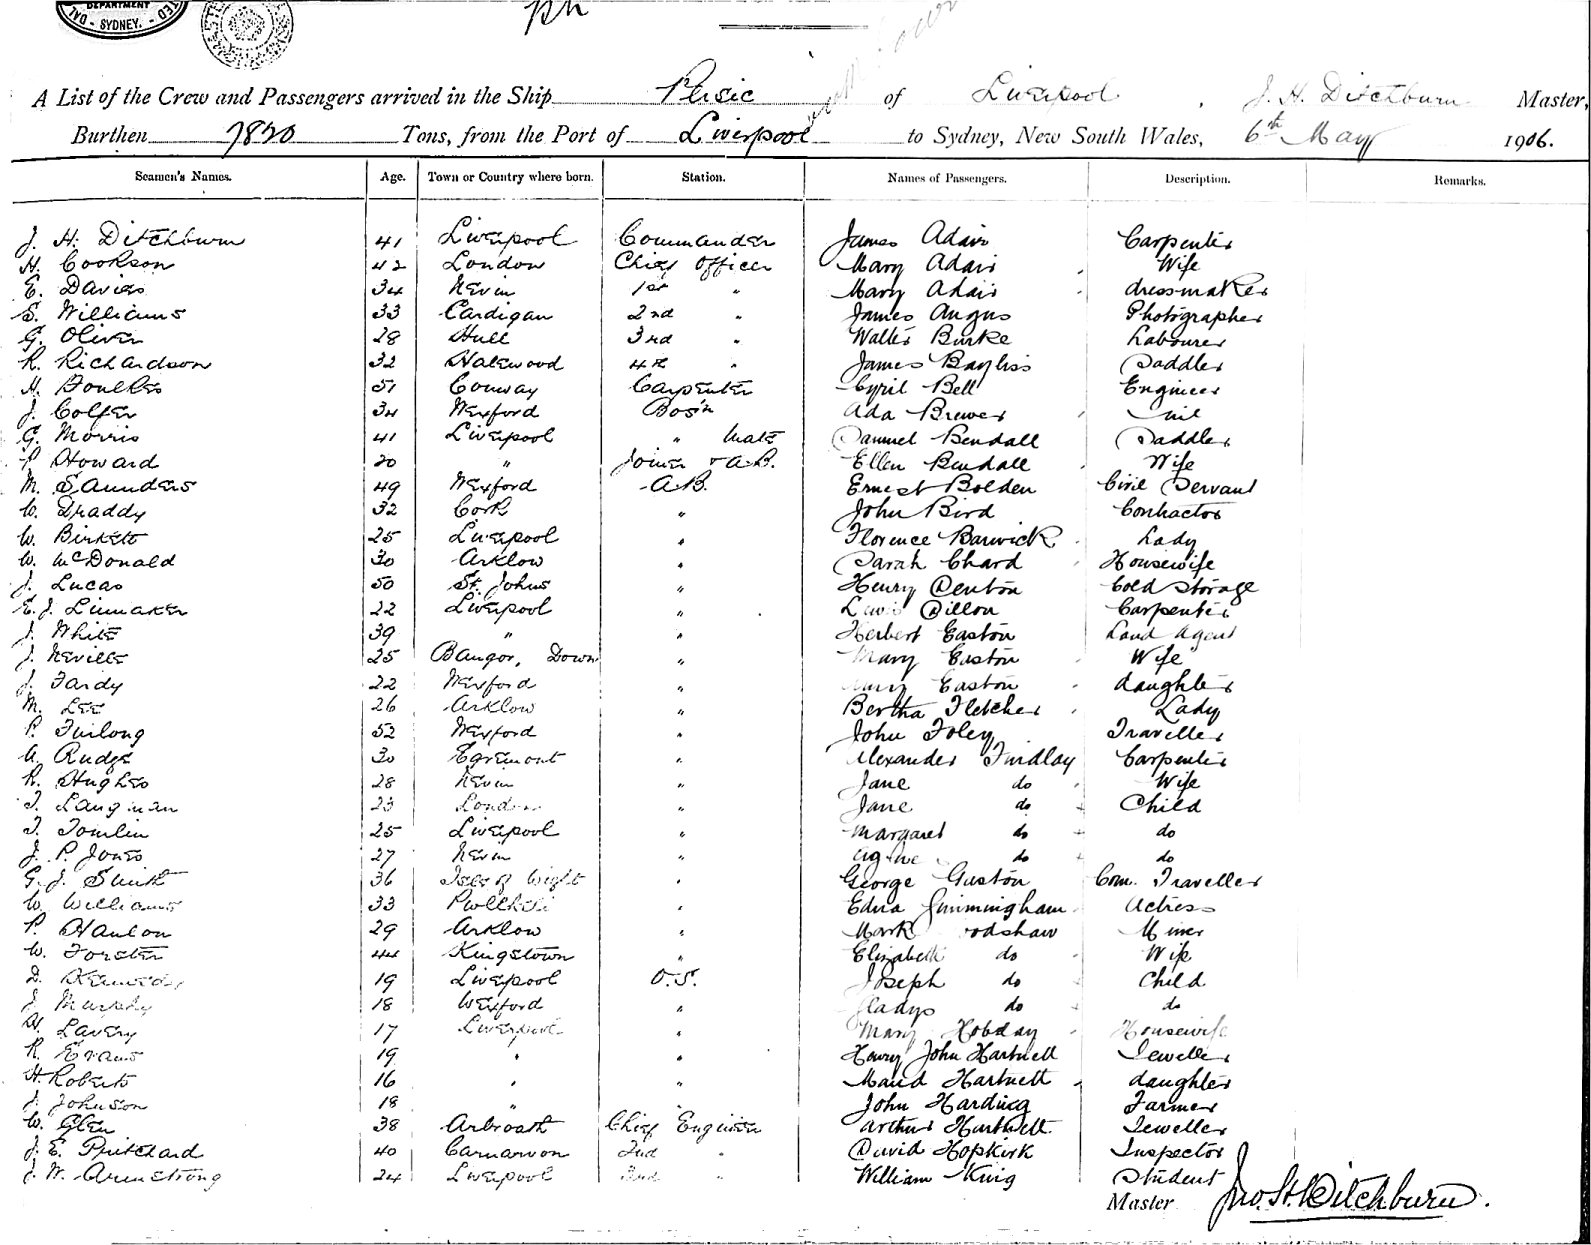 DEPARTMENT
SYDNEY.
A List of the Crew and Passengers arrived in the Ship Persic of Liverpool, J. H. Ditchburn Master,
Burthen 7820 Tons, from the Port of Liverpool to Sydney, New South Wales, 6th May 1906.
Seamen's Names. Age. Town or Country where born. Station. Names of Passengers. Description. Remarks.
J. H. Ditchburn 41 Liverpool Commander James Adair Carpenter
H. Cookson 42 London Chief Officer Mary Adair Wife
E. Davies 34 Nevin 1st " Mary Adair dressmaker
S. Williams 33 Cardigan 2nd " James Angus Photographer
G. Oliver 28 Hull 3rd " Walter Burke Labourer
R. Richardson 32 Halewood 4th " James Bayliss Saddler
H. Foulkes 51 Conway Carpenter Cyril Bell Engineer
J. Colfer 34 Wexford Bos'n Ada Brewer nil
G. Morris 41 Liverpool " Mate Samuel Bendall Saddler
P. Howard 20 " Joiner & A.B. Ellen Bendall Wife
M. Saunders 49 Wexford A.B. Ernest Bolden Civil Servant
W. Draddy 32 Cork " John Bird Contractor
W. Birkett 25 Liverpool " Florence Barwick Lady
W. McDonald 30 Arklow " Sarah Chard Housewife
J. Lucas 50 St. Johns " Henry Denton Cold Storage
E. J. Linnaker 22 Liverpool " Lewis Dillon Carpenter
J. White 39 " " Herbert Easton Land Agent
J. Neville 25 Bangor, Down " Mary Easton Wife
J. Fardy 22 Wexford " Easton daughter
M. Lee 26 Arklow " Bertha Fletcher Lady
P. Furlong 52 Wexford " John Foley Traveller
A. Rudge 30 Egremont " Alexander Findlay Carpenter
R. Hughes 28 Nevin " Jane do Wife
T. Langman 23 London " Jane do Child
T. Tomlin 25 Liverpool " Margaret do do
J. P. Jones 27 Nevin " do do
G. J. Smith 36 Isle of Wight " George Guston Com. Traveller
W. Williams 33 Pwllheli " Edna Gimmingham Actress
P. Hanlon 29 Arklow " Mark Miner
W. Forster 44 Kingstown " Elizabeth do Wife
D. Kennedy 19 Liverpool O.S. Joseph do Child
J. Murphy 18 Wexford " Gladys do do
H. Lavery 17 Liverpool " Mary Hobday Housewife
R. Evans 19 " " Henry John Hartnell Jeweller
H. Roberts 16 " " Maud Hartnett daughter
J. Johnson 18 " " John Harding Farmer
W. Glen 38 Arbroath Chief Engineer Arthur Hartnell Jeweller
J. E. Pritchard 40 Carnarvon 2nd " David Hopkirk Inspector
J. W. Armstrong 24 Liverpool 3rd " William King Student
Master Jno. H. Ditchburn.